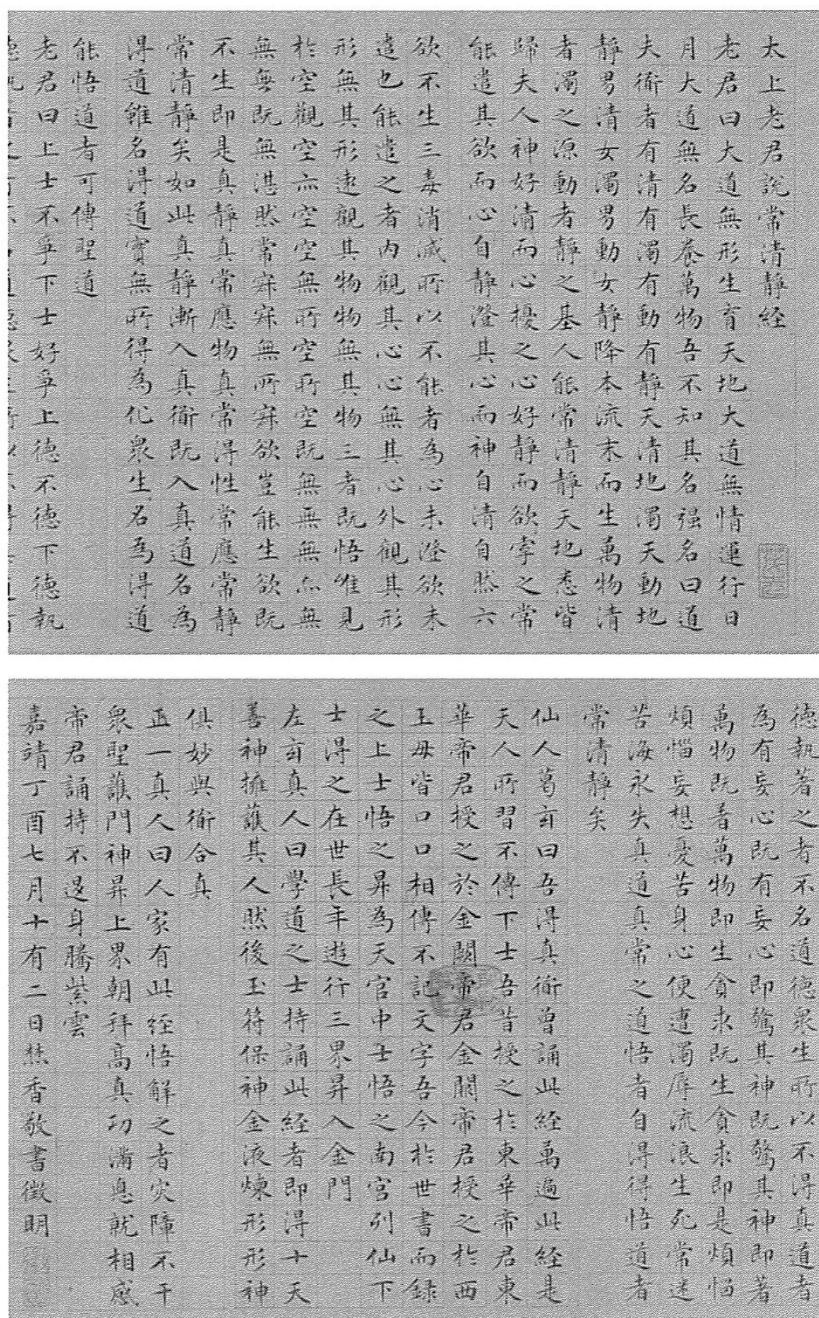 太上老君說常清靜経
老君曰大道無形生育天地大道無情運行日
月大道無名長養萬物吾不知其名强名曰道
夫衜者有清有濁有動有靜天清地濁天動地
靜男清女濁男動女靜降本流末而生萬物清
者濁之源動者靜之基人能常清靜天地悉皆
歸夫人神好清而心擾之心好靜而欲牽之常
能遣其欲而心自靜澄其心而神自清自然六
欲不生三毒消滅所以不能者為心未澄欲未
遣也能遣之者內觀其心心無其心外觀其形
形無其形遠觀其物物無其物三者既悟唯見
於空觀空亦空空無所空所空既無無無亦無
無無既無湛然常寂寂無所寂欲豈能生欲既
不生即是真靜真常應物真常得性常應常靜
常清靜矣如此真靜漸入真衜既入真道名為
得道雖名得道實無所得為化衆生名為得道
能悟道者可傳聖道
老君曰上士不爭下士好爭上德不德下德執
德執著之者不名道德衆生所以不得真道者
為有妄心既有妄心即驚其神既驚其神即著
萬物既着萬物即生貪求既生貪求即是煩惱
煩惱妄想憂苦身心便遭濁辱流浪生死常迷
苦海永失真道真常之道悟者自得得悟道者
常清靜矣
仙人葛玄曰吾得真衜曾誦此経萬遍此経是
天人所習不傳下士吾昔授之於東華帝君東
華帝君授之於金闕帝君金闕帝君授之於西
王母皆口口相傳不記文字吾今於世書而録
之上士悟之昇為天官中士悟之南宮列仙下
士得之在世長年遊行三界昇入金門
左玄真人曰學道之士持誦此経者即得十天
善神擁護其人然後玉符保神金液煉形形神
俱妙與衜合真
正一真人曰人家有此経悟解之者灾障不干
衆聖護門神昇上界朝拜高真功滿息就相感
帝君誦持不退身騰紫雲
嘉靖丁酉七月十有二日焚香敬書徵明